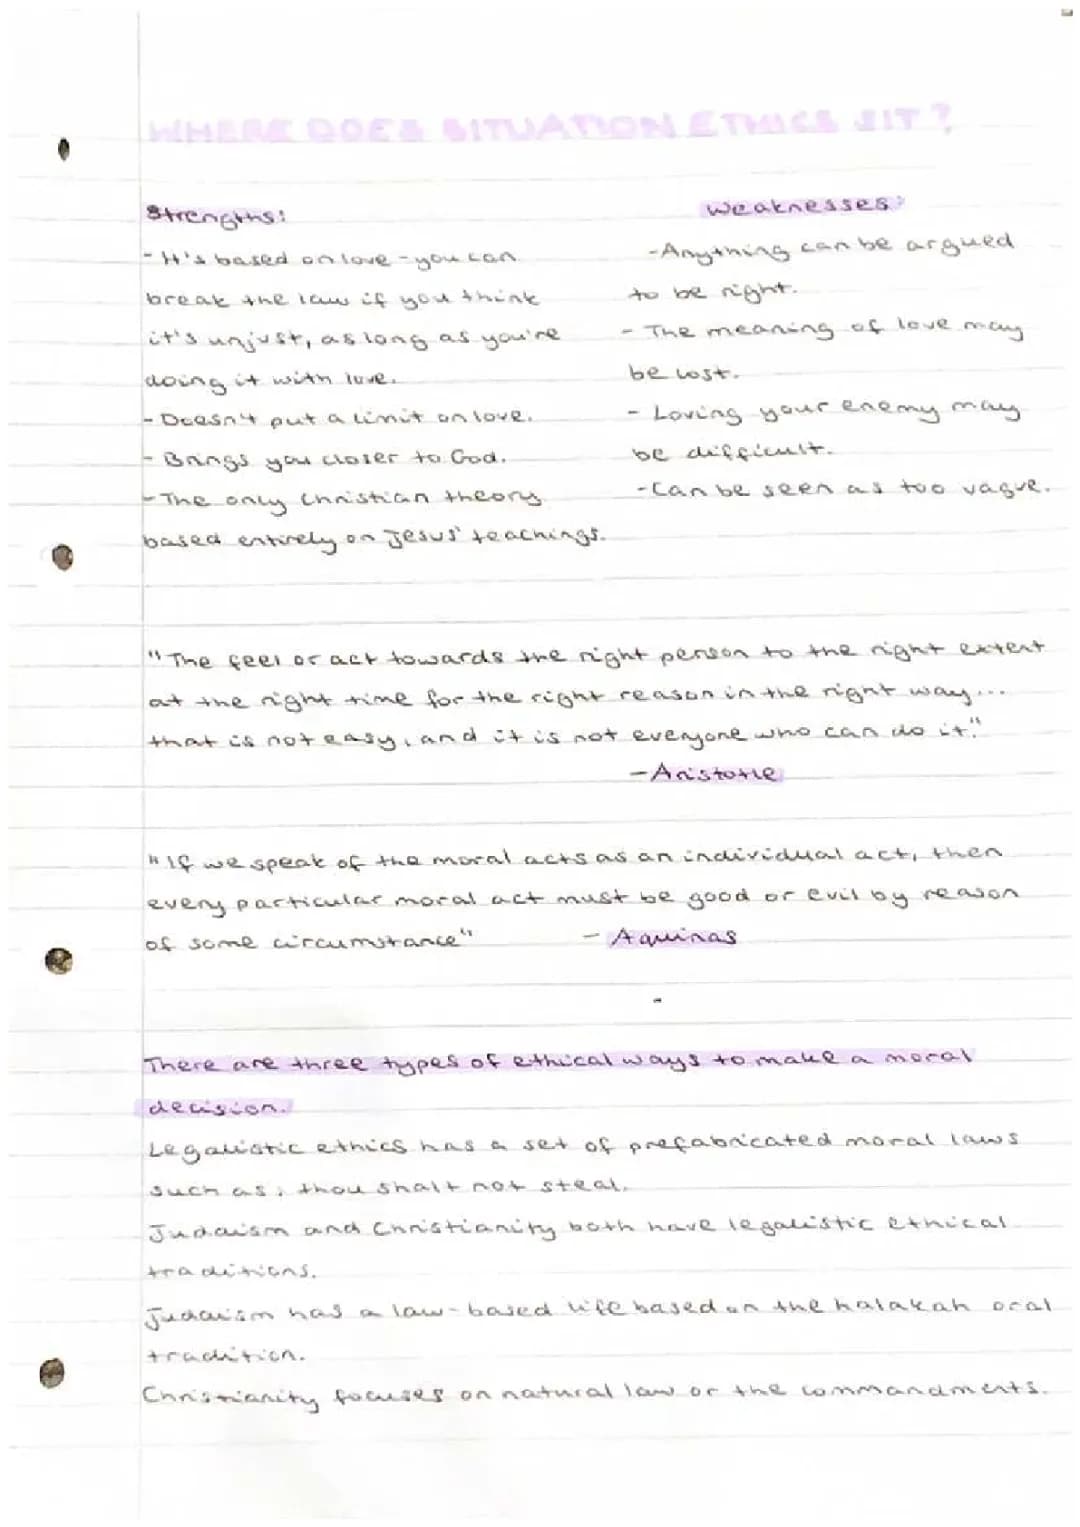 WHERE DOES SITUATION ETHICS SIT?
Strengths:
- It's based on love - you can
break the law if you think
it's unjust, as long as you're
doing it with love.
- Doesn't put a limit on love.
- Brings you closer to God.
- The only Christian theory
based entirely on Jesus' teachings.
Weaknesses:
- Anything can be argued
to be right.
- The meaning of love may
be lost.
- Loving your enemy may
be difficult.
- Can be seen as too vague.
"The feel or act towards the right person to the right extent
at the right time for the right reason in the right way...
that is not easy, and it is not everyone who can do it."
- Aristotle
"If we speak of the moral acts as an individual act, then
every particular moral act must be good or evil by reason
of some circumstance"
- Aquinas
There are three types of ethical ways to make a moral
decision.
Legalistic ethics has a set of prefabricated moral laws
such as; thou shalt not steal.
Judaism and Christianity both have legalistic ethical
traditions.
Judaism has a law-based life based on the halakah oral
tradition.
Christianity focuses on natural law or the commandments.